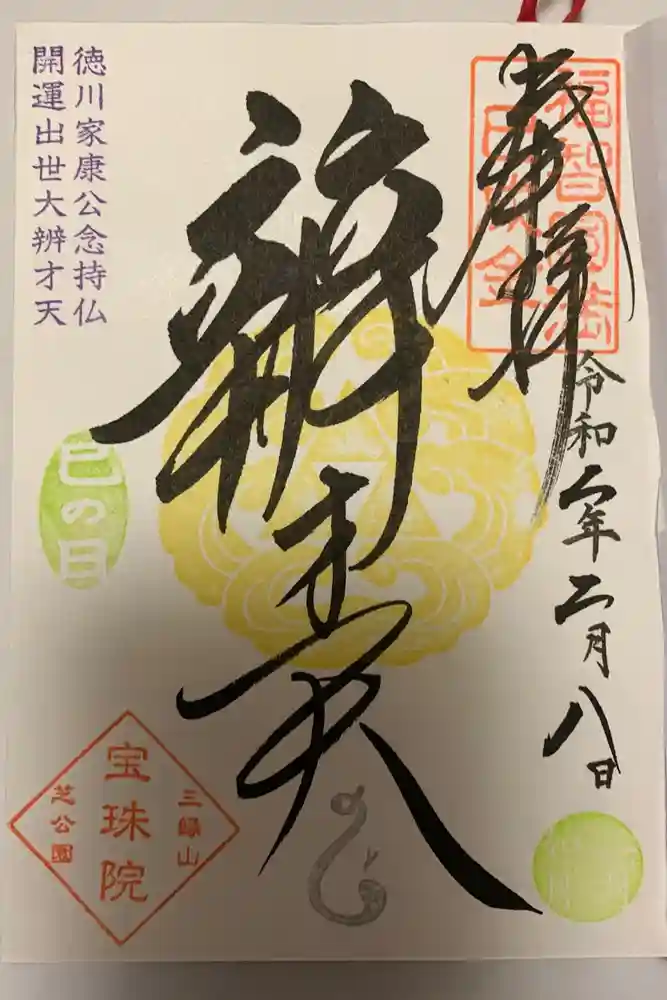 奉拝
福智円満
令和二年二月八日
辨才天
徳川家康公念持仏
開運出世大辨才天
巳の日
三縁山
宝珠院
芝公園